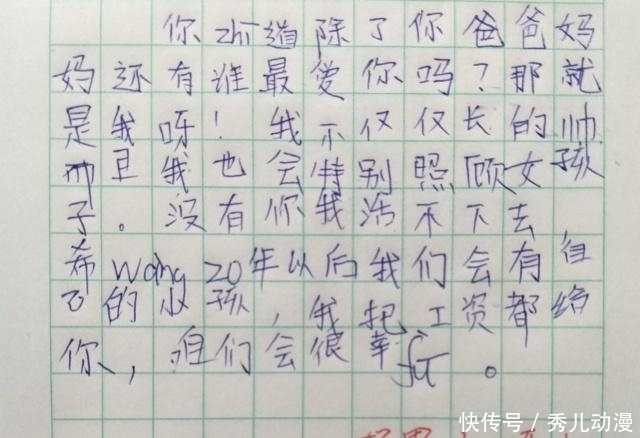 你zhī道除了你爸爸妈
妈还有谁最爱你吗？那就
是我呀！我不仅仅长的帅
而且我也会特别照顾女孩
子。没有你我活不下去
希wàng20年以后我们会有自
己的小孩，我把工资都给
你，咱们会很幸fú。
快传号／秀儿动漫